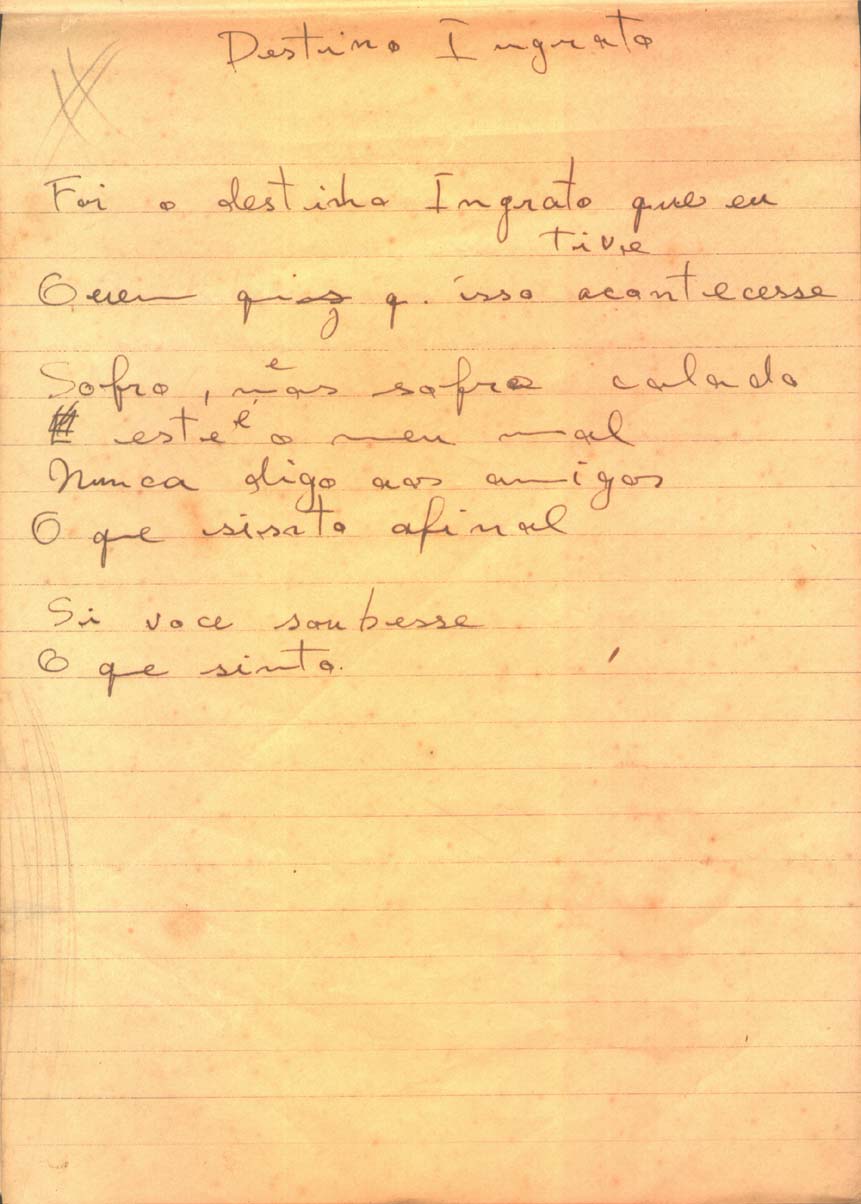 Destino Ingrato
Foi o destinho Ingrato que eu
tive
Quem quiz q. isso acontecesse
Sofro, mas sofro calado
este é o meu mal
Nunca digo aos amigos
O que sisnto afinal
Si voce soubesse
O que sinto.